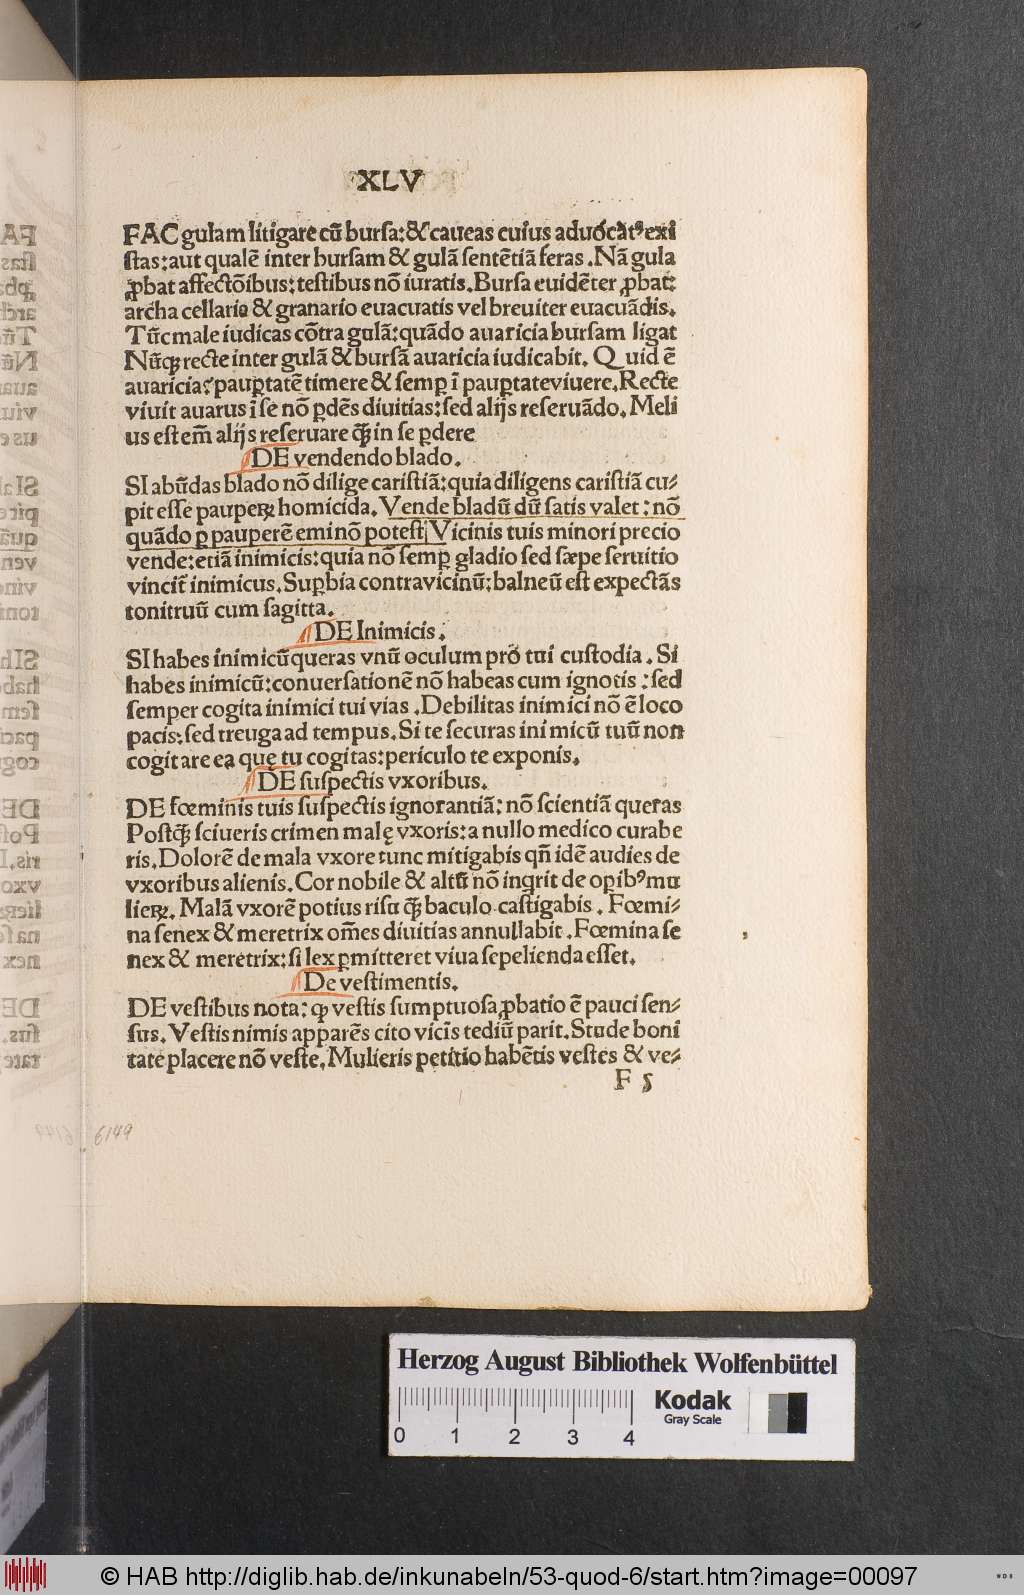 XLV
FAC gulam litigare cū bursa: & caueas cuius aduocatꝰ exi
stas: aut qualē inter bursam & gulā sentētiā feras. Nā gula
ꝓbat affectōibus: testibus nō iuratis. Bursa euidēter ꝓbat:
archa cellario & granario euacuatis vel breuiter euacuādis.
Tūc male iudicas cōtra gulā: quādo auaricia bursam ligat
Nūꝙ recte inter gulā & bursā auaricia iudicabit. Quid ē
auaricia? pauꝑtatē timere & semꝑ ī pauꝑtate viuere. Recte
viuit auarus ī se nō ꝑdēs diuitias: sed alijs reseruādo. Meli
us est em̄ alijs reseruare q̄ꝫ in se ꝑdere
DE vendendo blado.
SI abūdas blado nō dilige caristiā: quia diligens caristiā cu⸗
pit esse pauperꝝ homicida. Vende bladū dū satis valet: nō
quādo ꝑ pauperē emi nō potest| Vicinis tuis minori precio
vende: etiā inimicis: quia nō semꝑ gladio sed sæpe seruitio
vincit̄ inimicus. Suꝑbia contra vicinū: balneū est expectās
tonitruū cum sagitta.
DE Inimicis.
SI habes inimicū queras vnū oculum pro tui custodia. Si
habes inimicū: conuersationē nō habeas cum ignotis: sed
semper cogita inimici tui vias. Debilitas inimici nō ē loco
pacis: sed treuga ad tempus. Si te securas inimicū tuū non
cogitare ea quę tu cogitas: periculo te exponis.
DE suspectis vxoribus.
DE fœminis tuis suspectis ignorantiā: nō scientiā queras
Postq̄ꝫ sciueris crimen malę vxoris: a nullo medico curabe
ris. Dolorē de mala vxore tunc mitigabis qn̄ idē audies de
vxoribus alienis. Cor nobile & altū nō inqrit de oꝑibꝰ mu
lierꝝ. Malā vxorē potius risu q̄ꝫ baculo castigabis. Fœmi⸗
na senex & meretrix om̄es diuitias annullabit. Fœmina se
nex & meretrix: si lex ꝑmitteret viua sepelienda esset.
De vestimentis.
DE vestibus nota: ꝙ vestis sumptuosa ꝓbatio ē pauci sen⸗
sus. Vestis nimis apparēs cito vicīs tediū parit. Stude boni
tate placere nō veste. Mulieris petitio habētis vestes & ve⸗
F 5
6149
Herzog August Bibliothek Wolfenbüttel
Kodak
Gray Scale
0 1 2 3 4
© HAB http://diglib.hab.de/inkunabeln/53-quod-6/start.htm?image=00097